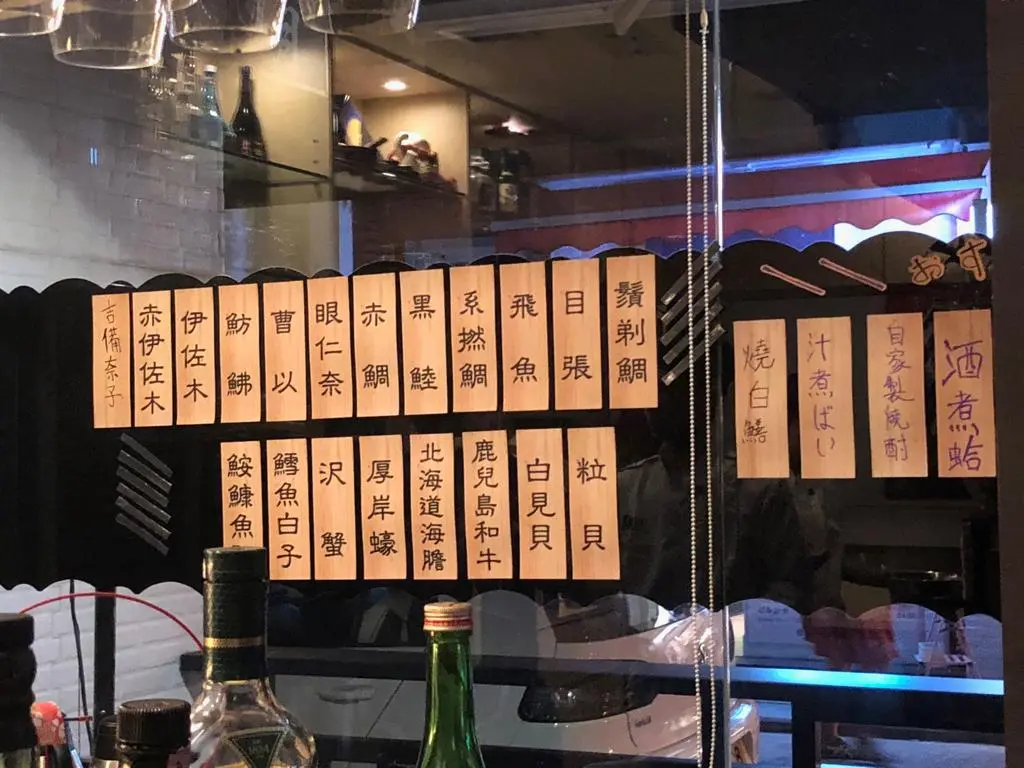 おす
酒煮蛤
自家製焼酎
汁煮ばい
燒白鱔
鬚剃鯛
目張
飛魚
系撚鯛
黑䱾
赤鯛
眼仁奈
曹以
魴鮄
伊佐木
赤伊佐木
吉備奈子
粒貝
白見貝
鹿兒島和牛
北海道海膽
厚岸蠔
沢蟹
鱈魚白子
鮟鱇魚